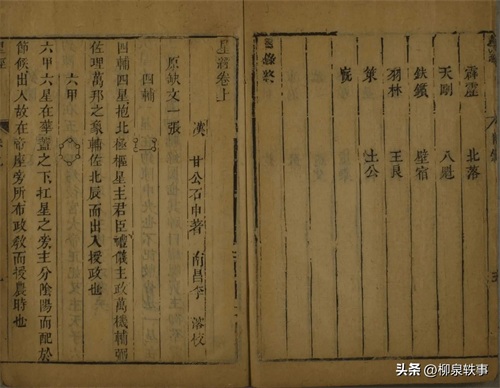 霹靂 北落
天剛 八魁
鈇鑕 壁宿
羽林 王良
策 土公
星經卷上
漢 甘公石申著 南昌李
原缺文一張
四輔
四輔四星抱北極樞星主君臣禮儀主政萬機輔弼
佐理萬邦之象輔佐北辰而出入授政也
六甲
六甲六星在華蓋之下杠星之旁主分陰陽而配於
節候出入故在帝座旁所布政教而授農時也
头条 @柳泉轶事